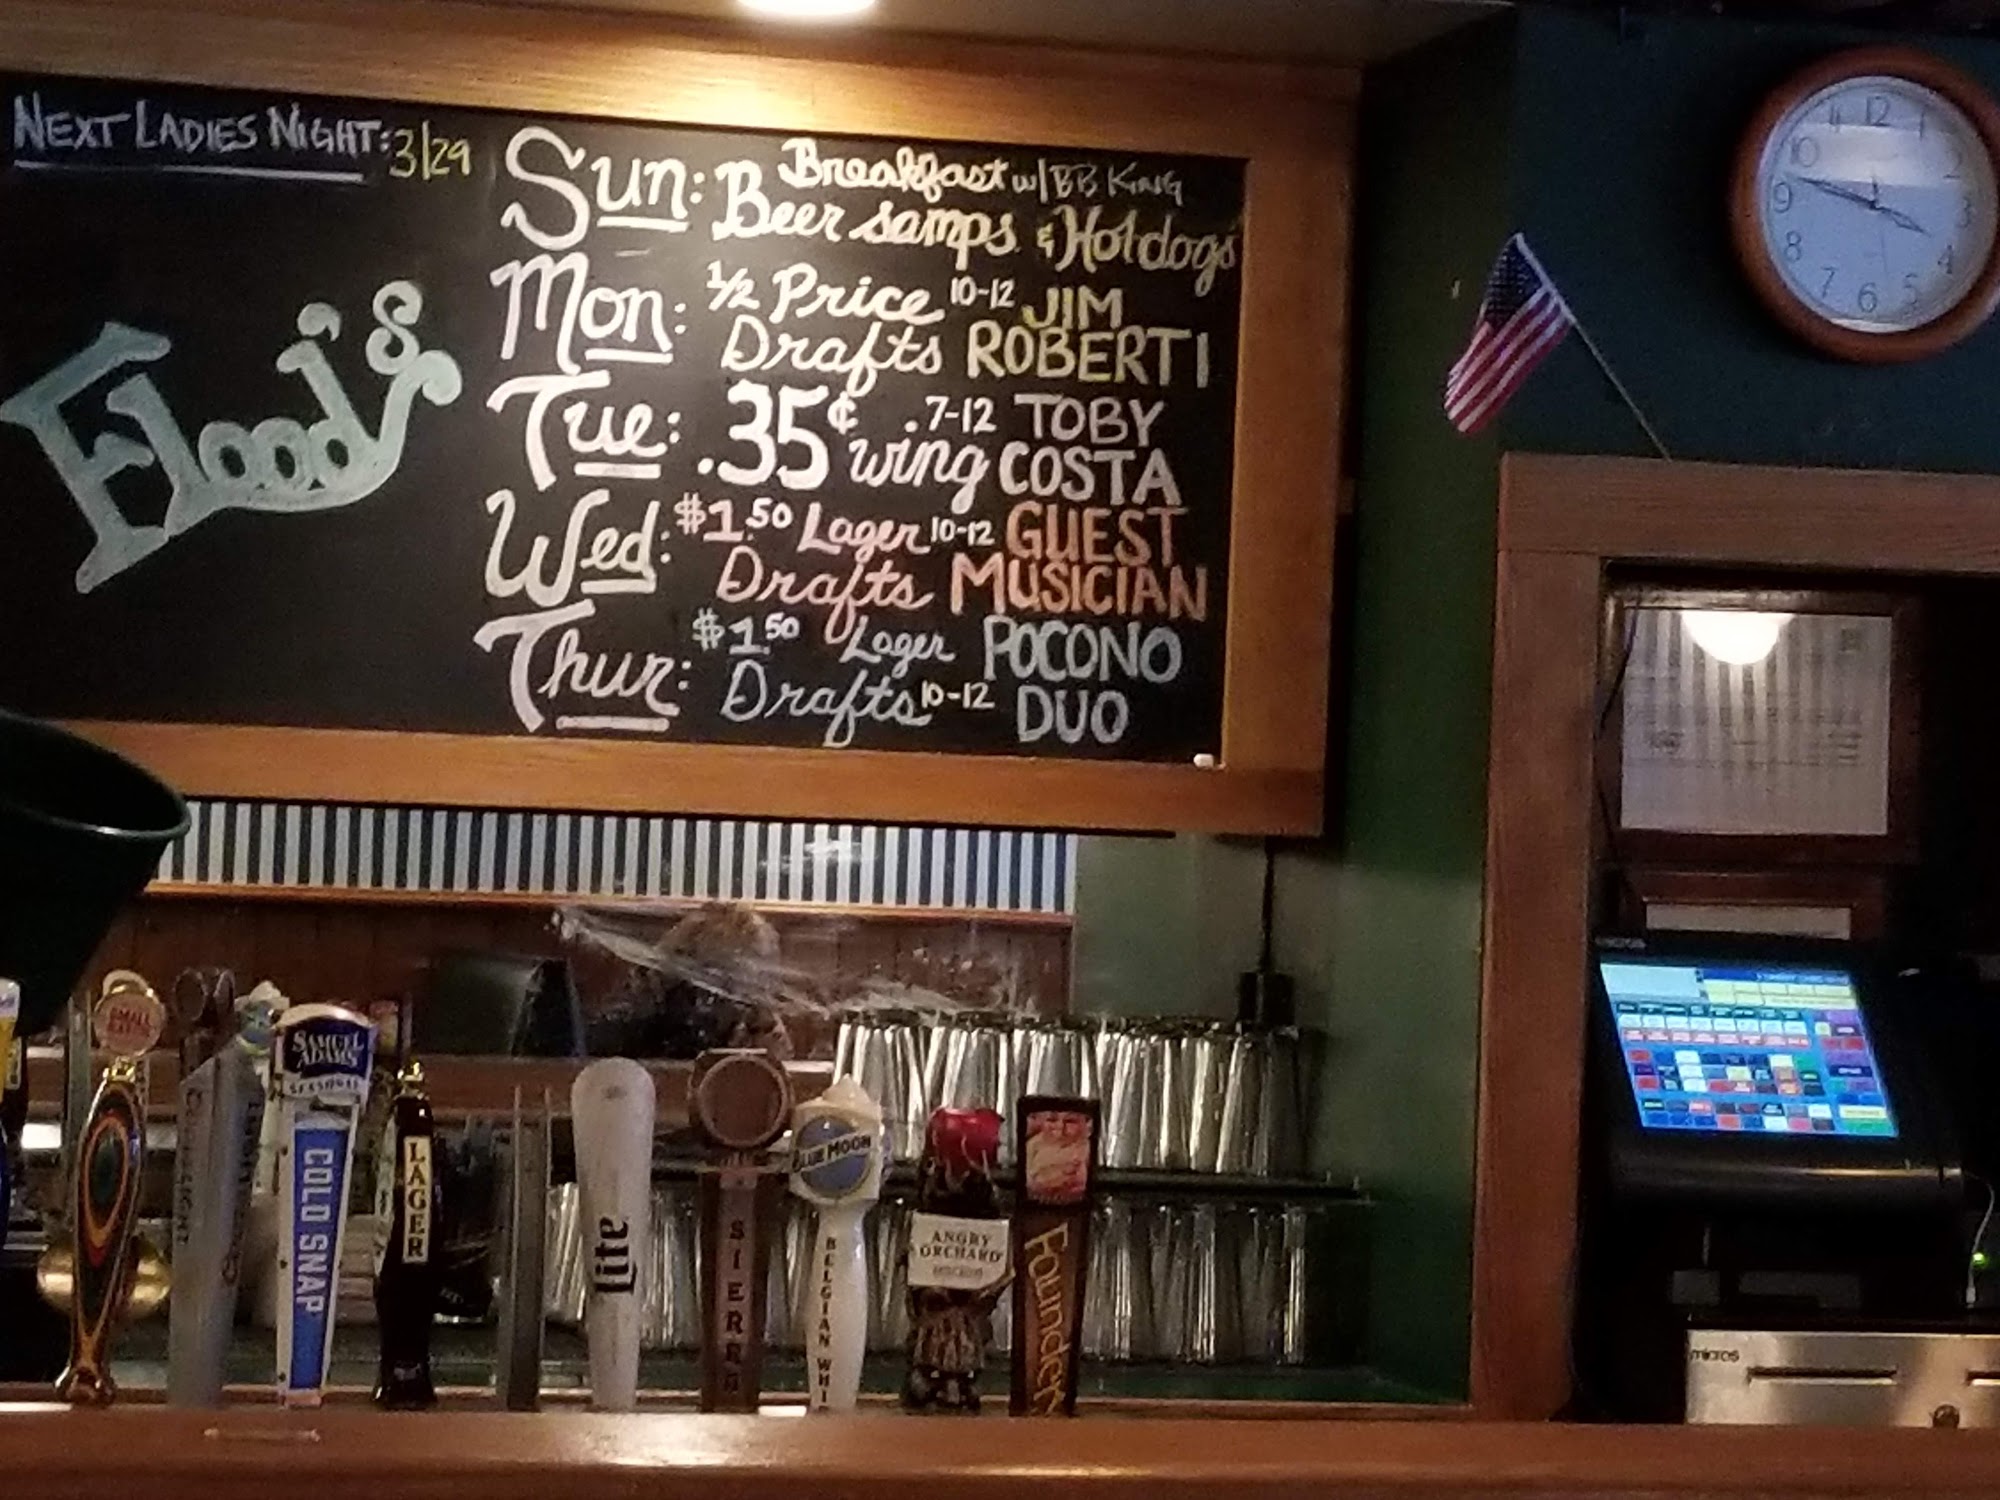 NEXT LADIES NIGHT: 3/29
Flood's
Sun: Breakfast w/ BB KING
Beer samps & Hotdogs
Mon: 1/2 Price 10-12 JIM
Drafts ROBERTI
Tue: .35¢ 7-12 TOBY
wing COSTA
Wed: $1.50 Lager 10-12 GUEST
Drafts MUSICIAN
Thur: $1.50 Lager POCONO
Drafts 10-12 DUO
11 12 1
10 2
9 3
8 4
7 6 5
SMALL
SAMUEL
ADAMS
SEASONAL
COLD SNAP
LAGER
Lite
SIERRA
BLUE MOON
BELGIAN WHI
ANGRY
ORCHARD
Founders
micros